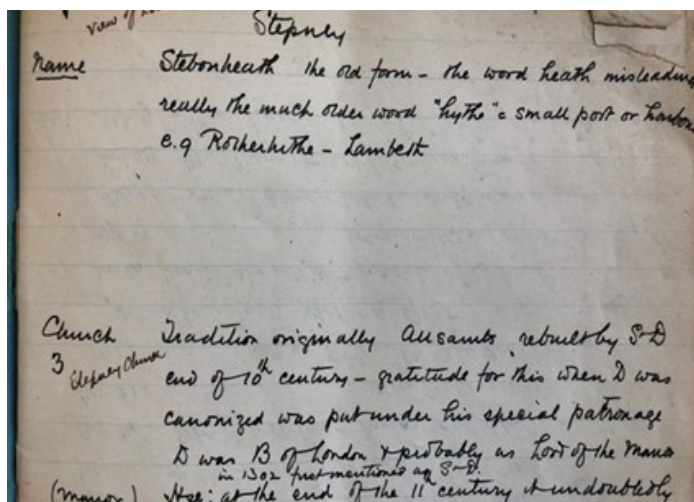 view of
Stepney
Name Stebonheath the old form – the word heath misleading
really the much older word "hythe" a small port or harbou
e.g Rotherhithe – Lambeth
Church Tradition originally All Saints rebuilt by S–D
3 Stepney Church end of 10th century – gratitude for this when D was
canonized was put under his special patronage
D was B of London & probably as Lord of the Manor
in 1302 first mentioned as S–D.
(Manor) at the end of the 11th century it undoubtedly